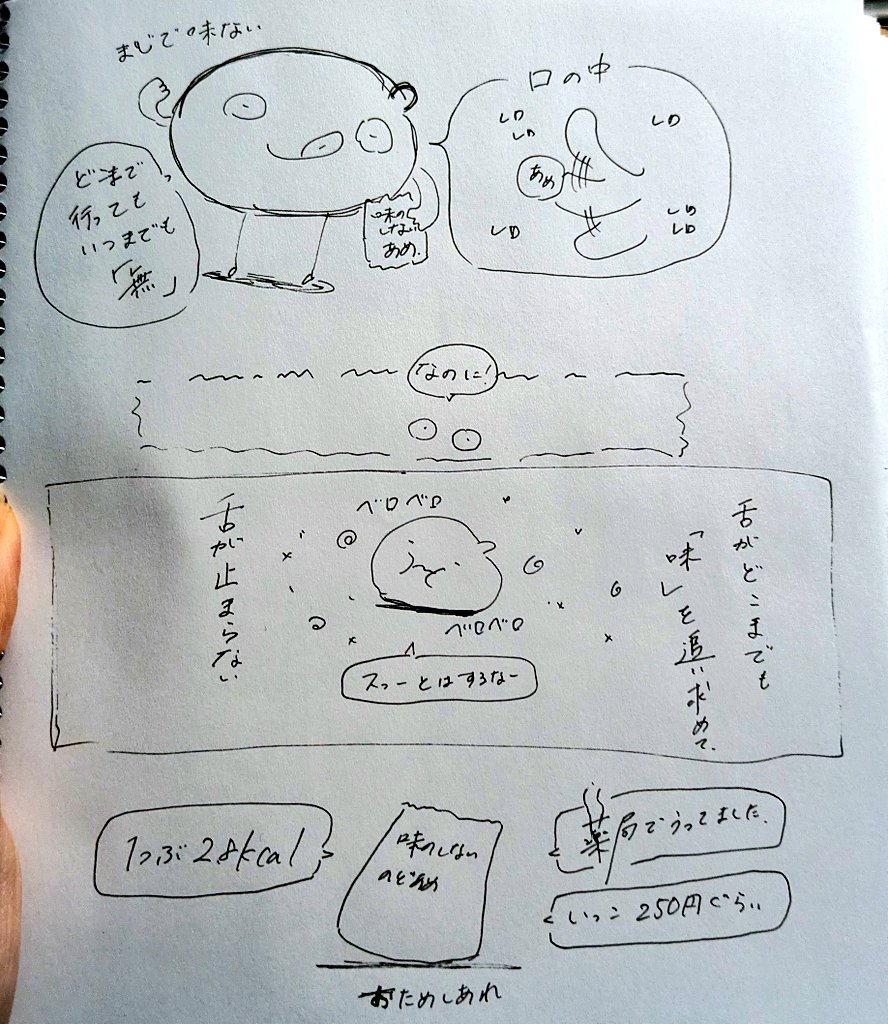 まじで味ない
どこまで
行っても
いつまでも
「無」
味の
しない
あめ.
口の中
レロ
レロ
レロ
あめ
レロ
レロ
レロ
なのに!
舌がどこまでも
「味」を追い求めて、
ベロベロ
ベロベロ
スっーとはするなー
舌が止まらない
1つぶ 2.8kcal
味のしない
のどあめ
薬局でうってました.
いっこ 250円ぐらい
おためしあれ